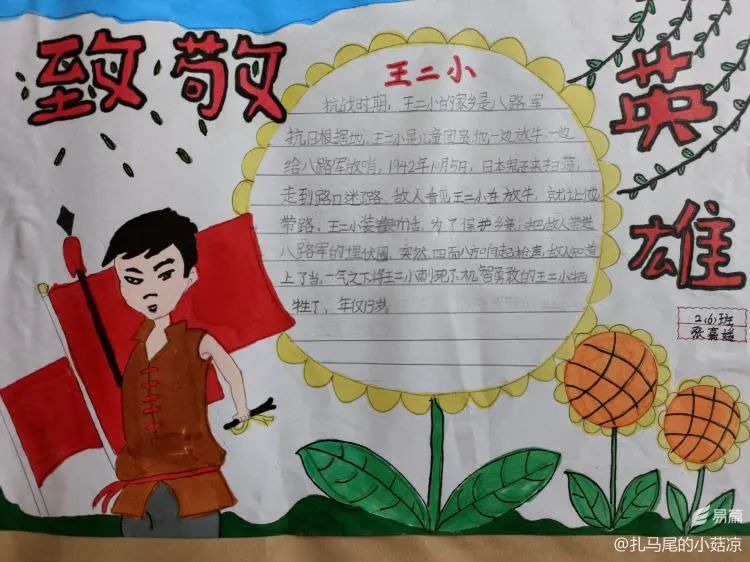 致敬
英雄
王二小
抗战时期，王二小的家乡是八路军
抗日根据地，王二小是儿童团员，他一边放牛，一边
给八路军放哨，1942年10月5日，日本鬼子来扫荡，
走到路口迷了路，敌人看见王二小在放牛，就让他
带路，王二小装着听话，为了保护乡亲，把敌人带进
八路军的埋伏圈，突然，四面八方响起枪声，敌人知道
上了当，一气之下将王二小刺死了，机智勇敢的王二小牺
牲了，年仅13岁。
2(6)班
张嘉
易篇
@扎马尾的小菇凉